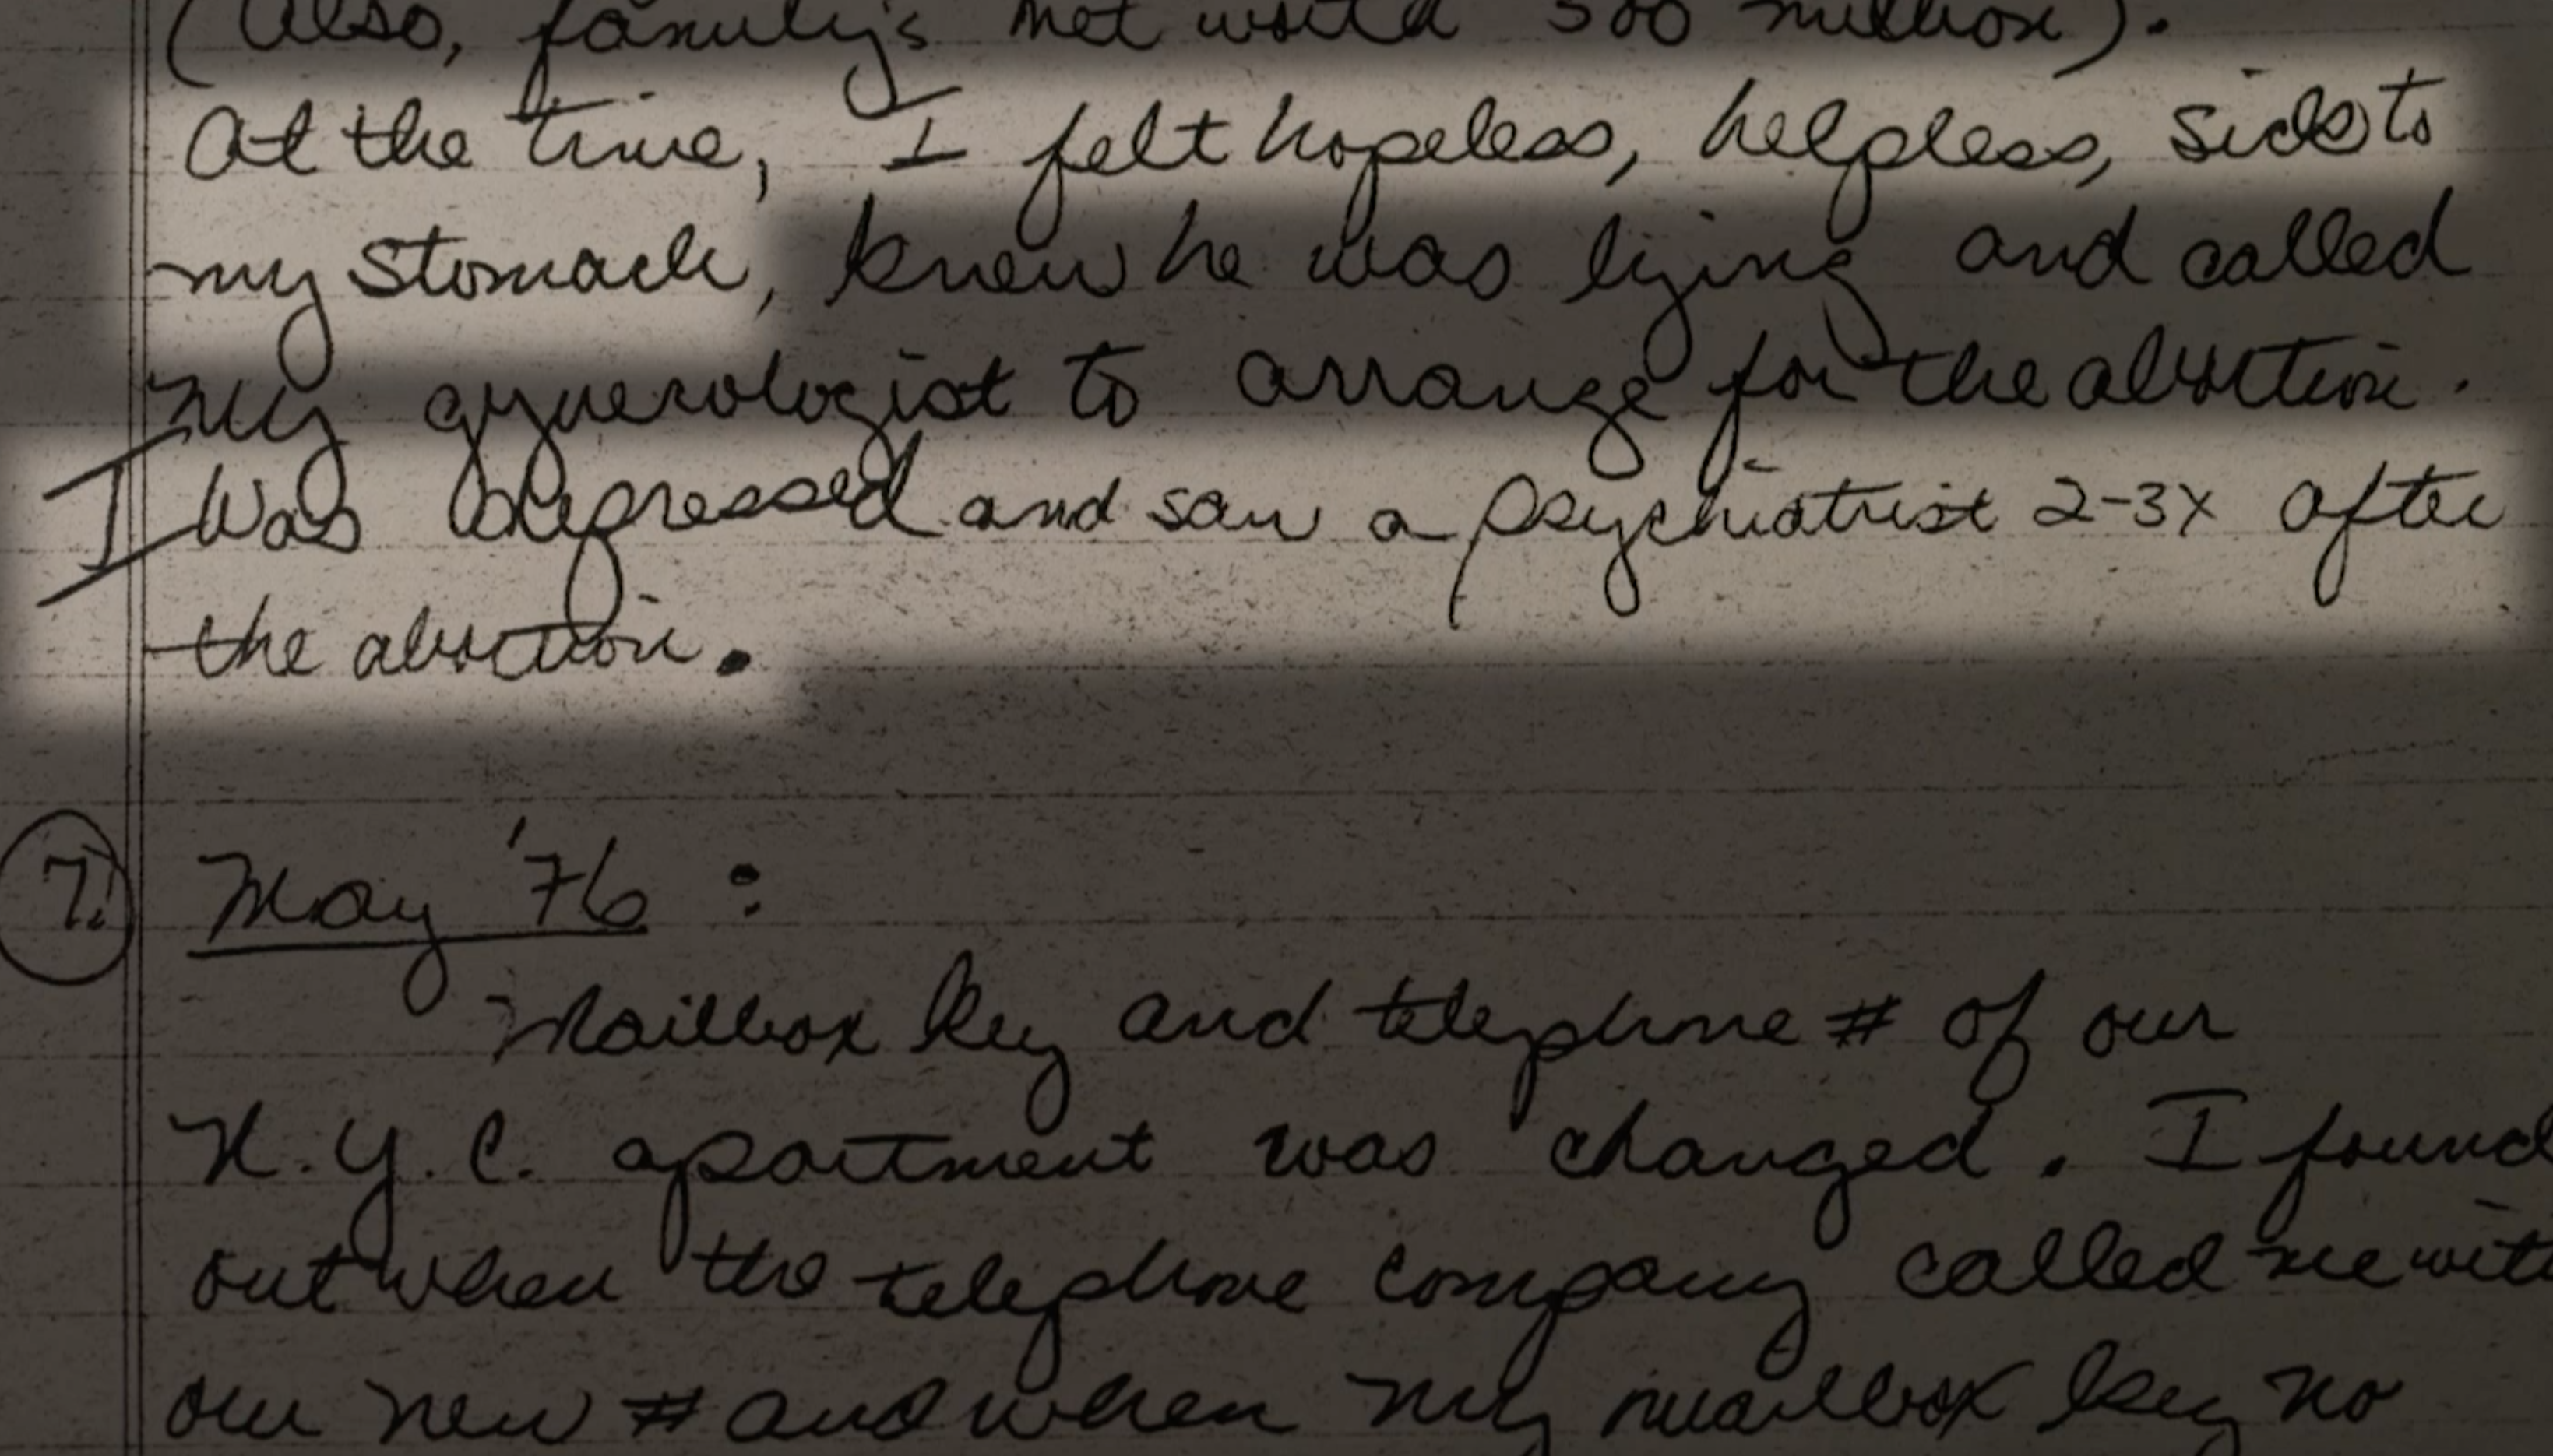 (Also, family's net worth 500 million).
At the time, I felt hopeless, helpless, sick to
my stomach, knew he was lying and called
my gynecologist to arrange for the abortion.
I was depressed and saw a psychiatrist 2-3x after
the abortion.
7. May '76 :
Mailbox key and telephone # of our
N.Y.C. apartment was changed. I found
out when the telephone company called me with
our new # and when my mailbox key no